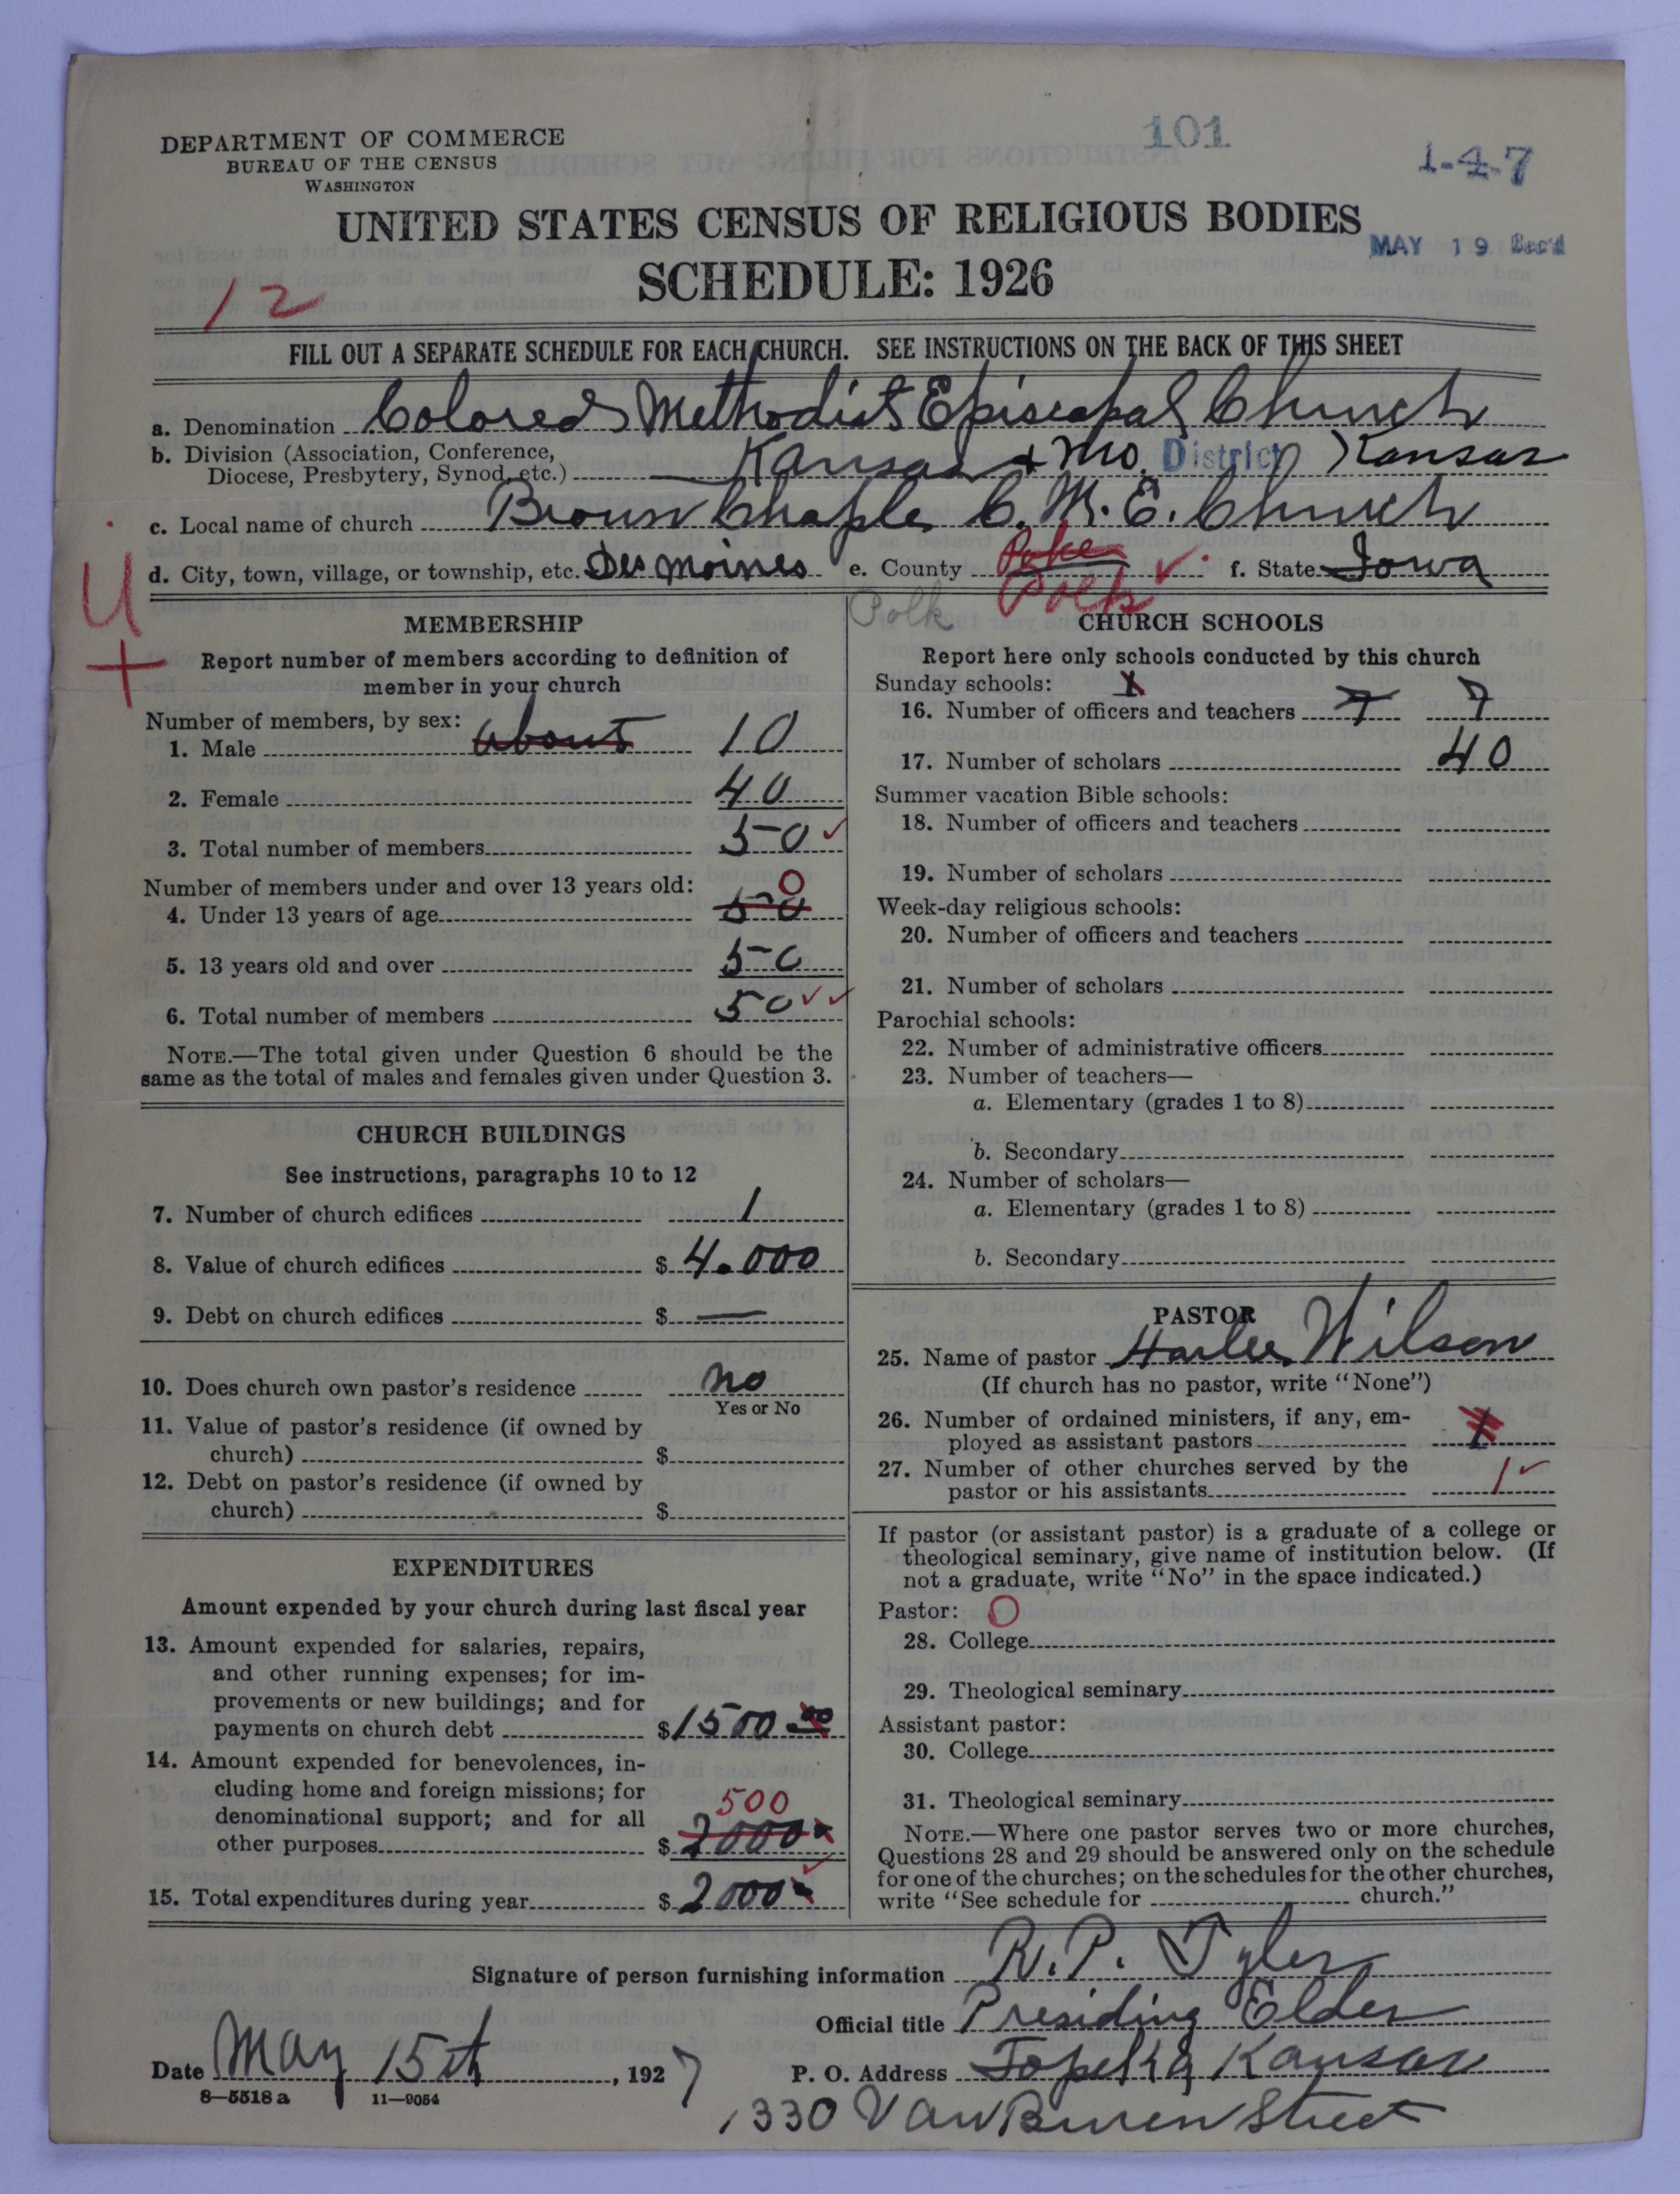 DEPARTMENT OF COMMERCE
BUREAU OF THE CENSUS
WASHINGTON
101
1-4-7
UNITED STATES CENSUS OF RELIGIOUS BODIES
MAY 19 Rec'd
SCHEDULE: 1926
12
FILL OUT A SEPARATE SCHEDULE FOR EACH CHURCH. SEE INSTRUCTIONS ON THE BACK OF THIS SHEET
a. Denomination Colored Methodist Episcopal Church
b. Division (Association, Conference,
Diocese, Presbytery, Synod, etc.) Kansas + Mo. District Kansas
c. Local name of church Brown Chaple C. M. E. Church
d. City, town, village, or township, etc. Des Moines e. County Polk f. State Iowa
Polk
U
+
MEMBERSHIP
Report number of members according to definition of
member in your church
Number of members, by sex:
1. Male about 10
2. Female 40
3. Total number of members 50
Number of members under and over 13 years old: 0
4. Under 13 years of age 50
5. 13 years old and over 50
6. Total number of members 50
NOTE.—The total given under Question 6 should be the
same as the total of males and females given under Question 3.
CHURCH BUILDINGS
See instructions, paragraphs 10 to 12
7. Number of church edifices 1
8. Value of church edifices $ 4.000
9. Debt on church edifices $ —
10. Does church own pastor's residence no
Yes or No
11. Value of pastor's residence (if owned by
church) $
12. Debt on pastor's residence (if owned by
church) $
EXPENDITURES
Amount expended by your church during last fiscal year
13. Amount expended for salaries, repairs,
and other running expenses; for im-
provements or new buildings; and for
payments on church debt $ 1500 00
14. Amount expended for benevolences, in-
cluding home and foreign missions; for
denominational support; and for all 500
other purposes $ 2000
15. Total expenditures during year $ 2000
CHURCH SCHOOLS
Report here only schools conducted by this church
Sunday schools: 1
16. Number of officers and teachers 7 7
17. Number of scholars 40
Summer vacation Bible schools:
18. Number of officers and teachers
19. Number of scholars
Week-day religious schools:
20. Number of officers and teachers
21. Number of scholars
Parochial schools:
22. Number of administrative officers
23. Number of teachers—
a. Elementary (grades 1 to 8)
b. Secondary
24. Number of scholars—
a. Elementary (grades 1 to 8)
b. Secondary
PASTOR
25. Name of pastor Wilson
(If church has no pastor, write "None")
26. Number of ordained ministers, if any, em-
ployed as assistant pastors 1
27. Number of other churches served by the
pastor or his assistants 1
If pastor (or assistant pastor) is a graduate of a college or
theological seminary, give name of institution below. (If
not a graduate, write "No" in the space indicated.)
Pastor: O
28. College
29. Theological seminary
Assistant pastor:
30. College
31. Theological seminary
NOTE.—Where one pastor serves two or more churches,
Questions 28 and 29 should be answered only on the schedule
for one of the churches; on the schedules for the other churches,
write "See schedule for church."
Signature of person furnishing information R. P. Tyler
Official title Presiding Elder
Date May 15th, 1927 P. O. Address Topeka Kansas
8-5518 a 11-9054
1330 Van Buren Street